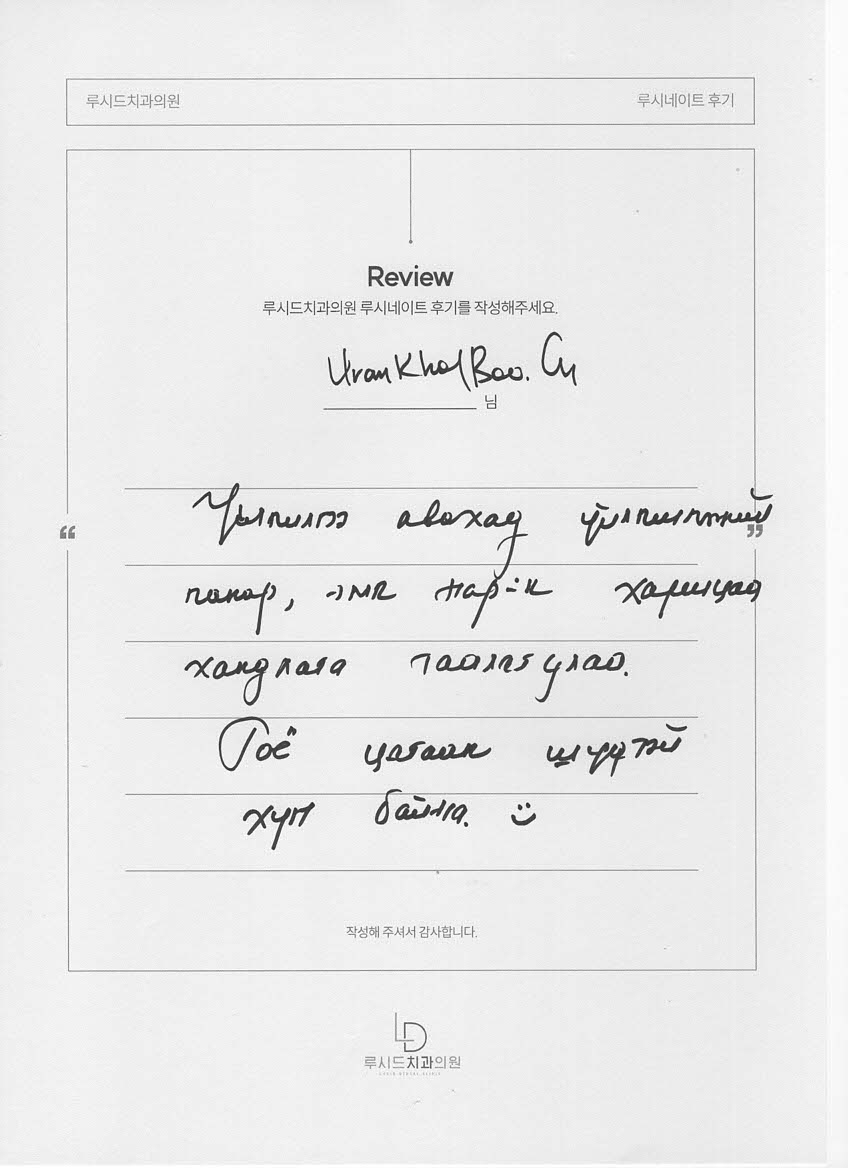 루시드치과의원
루시네이트 후기
Review
루시드치과의원 루시네이트 후기를 작성해주세요.
UranKholBoo.
님
“
Үйлчилгээ авахад үйлчилгээний
”
чанар, эмч нар-н харилцаа
хандлага таалагдлаа.
Гоё цагаан шүдтэй
хүн байна. :)
작성해 주셔서 감사합니다.
LD
루시드치과의원